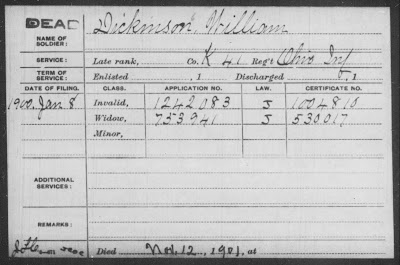 DEAD
Dickinson, William
NAME OF SOLDIER:
SERVICE: Late rank, Co. K 41 Reg't Ohio Inf
TERM OF SERVICE: Enlisted , 1 Discharged , 1
DATE OF FILING. CLASS. APPLICATION NO. LAW. CERTIFICATE NO.
1900. Jan 8 Invalid, 1242083 J 1004810
Widow, 753941 J 530017
Minor,
ADDITIONAL SERVICES:
REMARKS:
Died Nov. 12, 1901, at